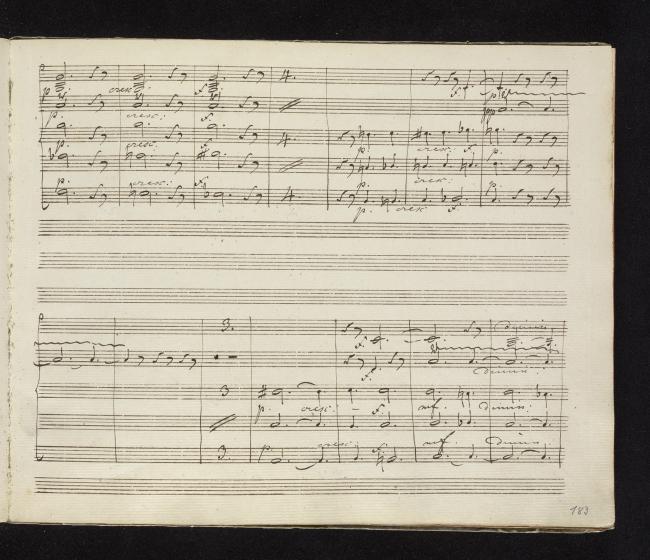 p. cresc: f.
p. cresc: f.
4.
f. p
pp
p. cresc: f.
4.
p. cresc: f. p.
p. cresc: f.
p. cresc:
4.
p. cresc f.
3.
f. dimin:
f. dimin:
3
p. cresc: - f. mf. dimin:
3.
p. cresc: f. mf. dimin:
183